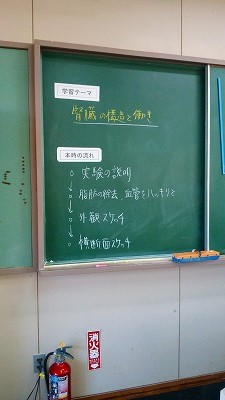 学習テーマ
腎臓の構造と働き
本時の流れ
実験の説明
脂肪の除去、血管をハッキリと
外観スケッチ
横断面スケッチ
消火器